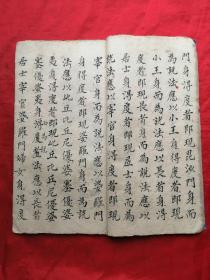 門身得度者即現毘沙門身而
為說法應以小王身得度者即現
小王身而為說法應以長者身得
度者即現長者身而為說法應以
居士身得度者即現居士身而為
說法應以宰官身得度者即現
宰官身而為說法應以婆羅門
身得度者即現婆羅門身而為說
法應以比丘比丘尼優婆
塞優婆夷身得度
法應以長者
居士宰官婆羅門婦女身得度